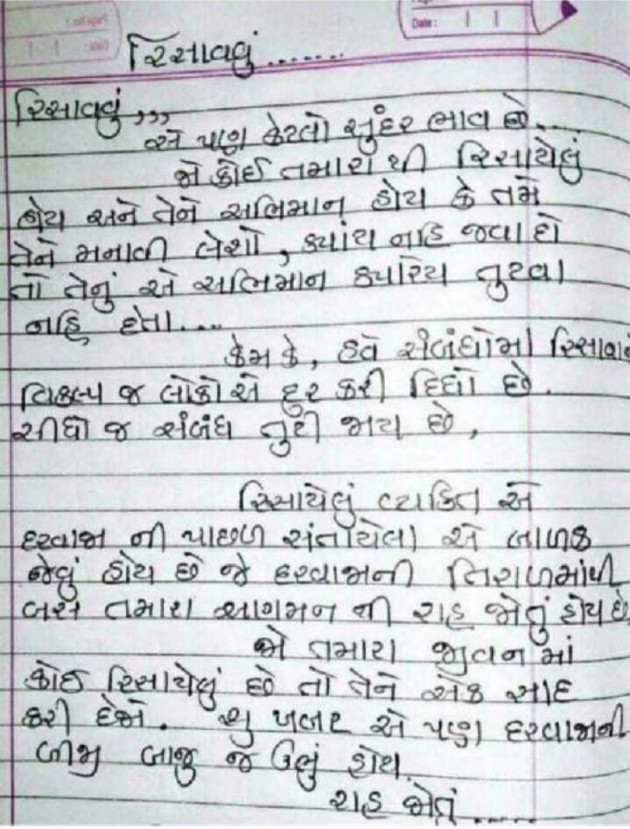 Date:
રિસાવવું .......
રિસાવવું ,,,
એ પણ કેટલો સુંદર ભાવ છે...
જો કોઈ તમારા થી રિસાયેલું
હોય અને તેને અભિમાન હોય કે તમે
તેને મનાવી લેશો, ક્યાંય નહિ જવા દો
તો તેનું એ અભિમાન ક્યારેય તુટવા
નહિ દેતા....
કેમ કે, હવે સંબંધોમાં
વિકલ્પ જ લોકો એ દુર કરી દિધો છે.
સીધો જ સંબંધ તુટી જાય છે,
રિસાયેલું વ્યક્તિ એ
દરવાજા ની પાછળ સંતાયેલા એ બાળક
જેવું હોય છે જે દરવાજાની તિરાળમાંથી
બસ તમારા આગમન ની રાહ જોતું હોય છે
જો તમારા જીવન માં
કોઈ રિસાયેલું છે તો તેને એક સાદ
કરી દેજો. શુ ખબર એ પણ દરવાજાની
બીજી બાજુ જ ઉભું હોય.
રાહ જોતું .....